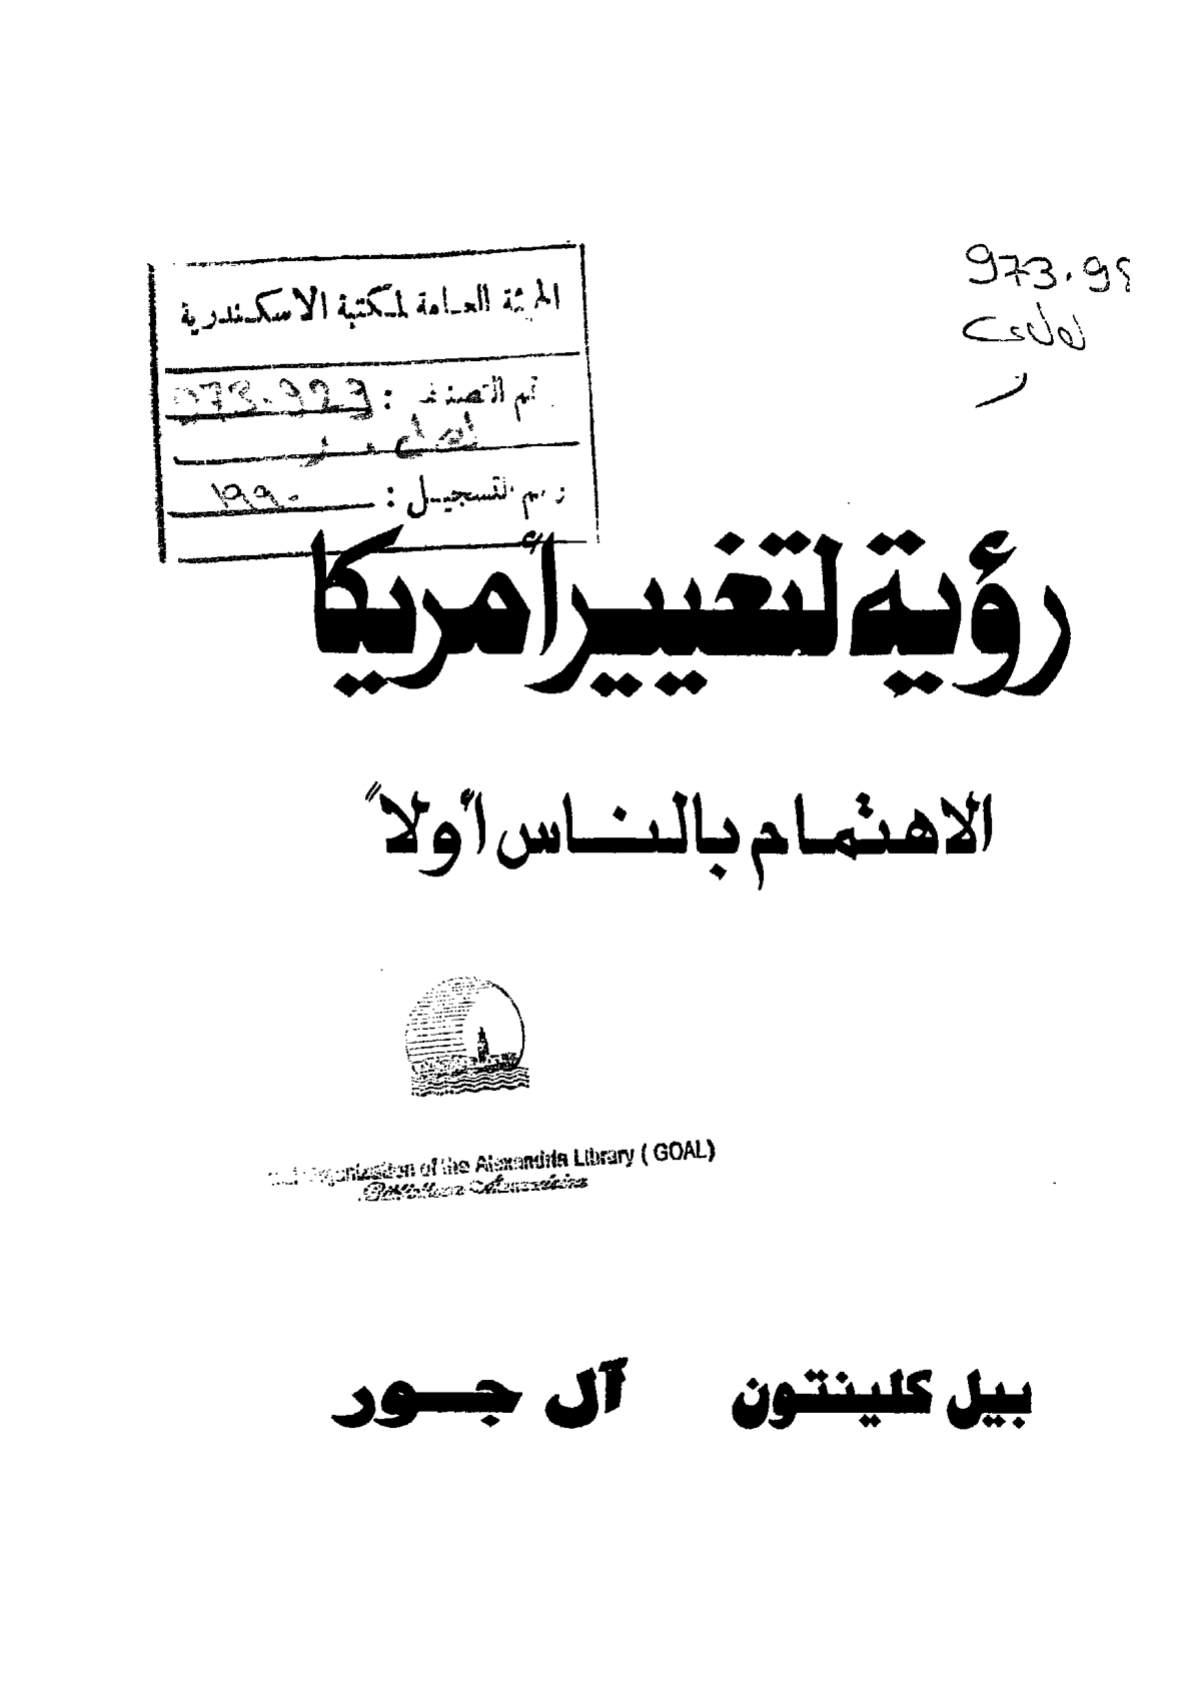 الهيئة العامة لمكتبة الاسكندرية
973.9
رقم التصنيف : 973.929
رقم التسجيل : ١٩٩٠
رؤية لتغيير أمريكا
الاهتمام بالناس أولاً
Organization of the Alexandria Library ( GOAL)
Bibliotheca Alexandrina
بيل كلينتون آل جور